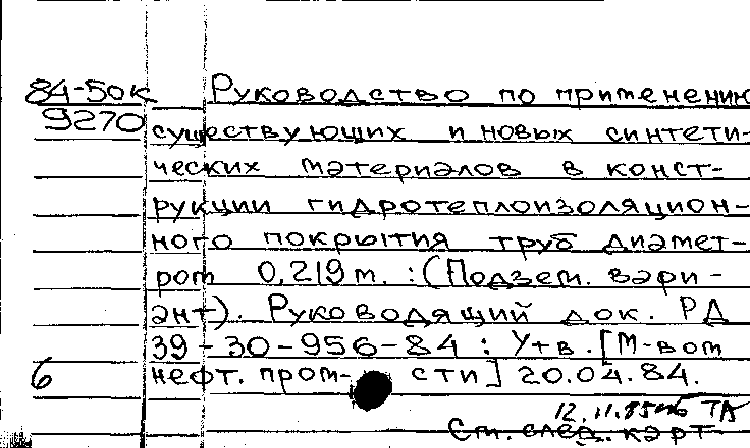 84-50к Руководство по применению
9270 существующих и новых синтети-
ческих материалов в конст-
рукции гидротеплоизоляцион-
ного покрытия труб диамет-
ром 0,219м. : (Подзем. вари-
ант). Руководящий док. РД
39-30-956-84 : Утв. [М-вом
6 нефт. пром-сти] 20.04.84.
12.11.85 ТА
См. след. карт.